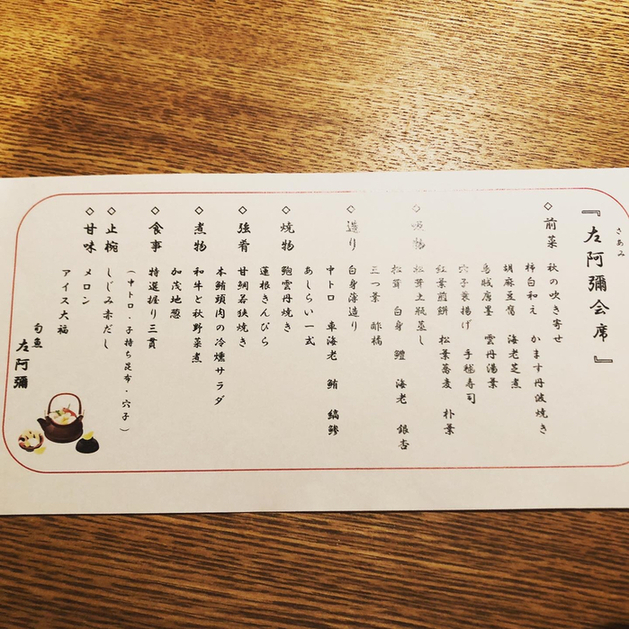 さあみ
『左阿彌会席』
◇前菜 秋の吹き寄せ
柿白和え かます丹波焼き
胡麻豆腐 海老芝煮
烏賊唐墨 雲丹湯葉
穴子東揚げ 手毬寿司
紅葉煎餅 松葉蕎麦 朴葉
◇吸物 松茸土瓶蒸し
松茸 白身 鱧 海老 銀杏
三つ葉 酢橘
◇造り 白身薄造り
中トロ 車海老 鮪 縞鯵
あしらい一式
◇焼物 鮑雲丹焼き
蓮根きんぴら
◇強肴 甘鯛若狭焼き
本鮪頭肉の冷燻サラダ
◇煮物 和牛と秋野菜煮
加茂地葱
◇食事 特選握り三貫
(中トロ・子持ち昆布・穴子)
◇止椀 しじみ赤だし
◇甘味 メロン
アイス大福
旬魚 左阿彌